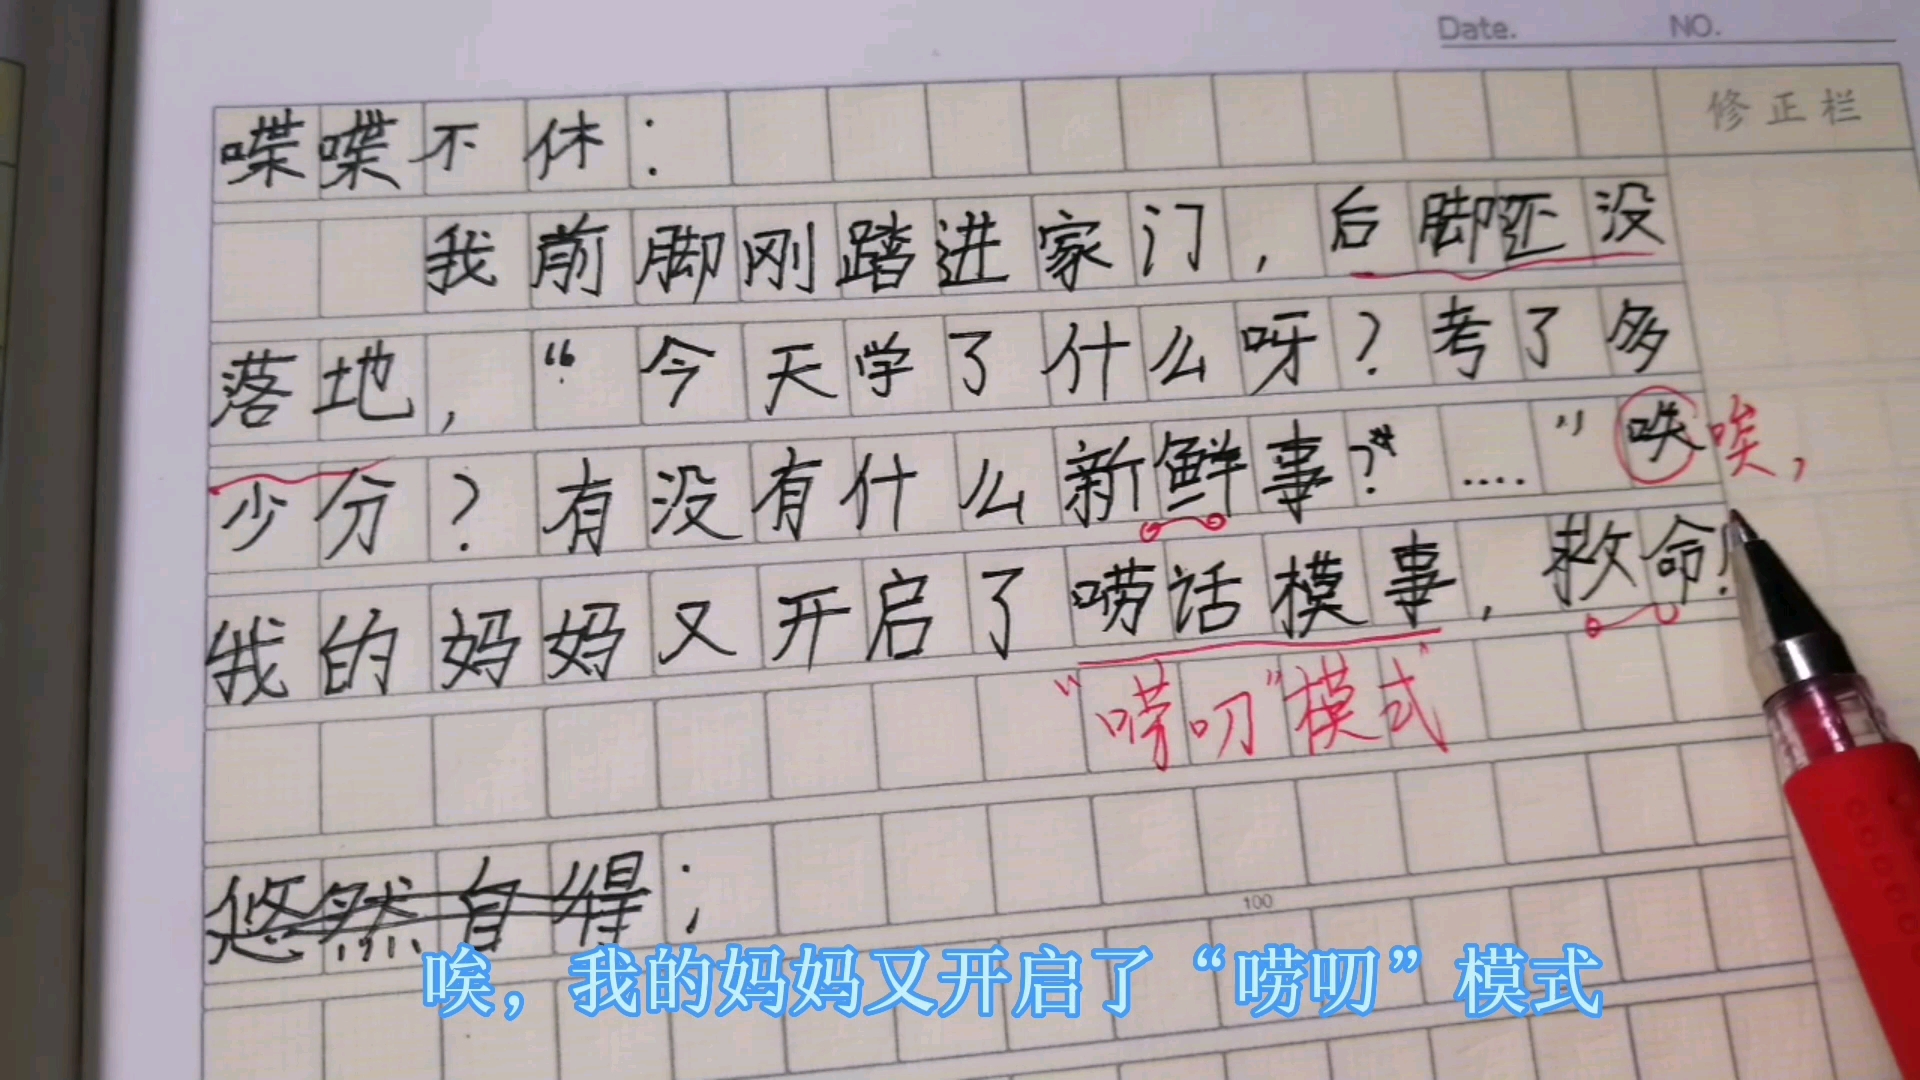 Date. NO.
修正栏
喋喋不休：
我前脚刚踏进家门，后脚还没
落地，“今天学了什么呀？考了多
少分？有没有什么新鲜事？”....” 唉，
我的妈妈又开启了唠话模事，救命！
“唠叨”模式
悠然自得；
100
唉，我的妈妈又开启了“唠叨”模式